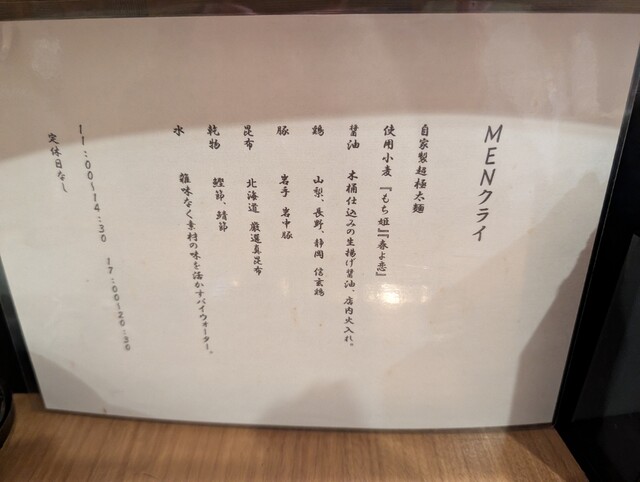 MENクライ
自家製超極太麺
使用小麦 『もち姫』『春よ恋』
醤油 木桶仕込みの生揚げ醤油、店内火入れ。
鶏 山梨、長野、静岡 信玄鶏
豚 岩手 岩中豚
昆布 北海道 厳選真昆布
乾物 鰹節、鯖節
水 雑味なく素材の味を活かすパイウォーター。
11:00～14:30 17:00～20:30
定休日なし